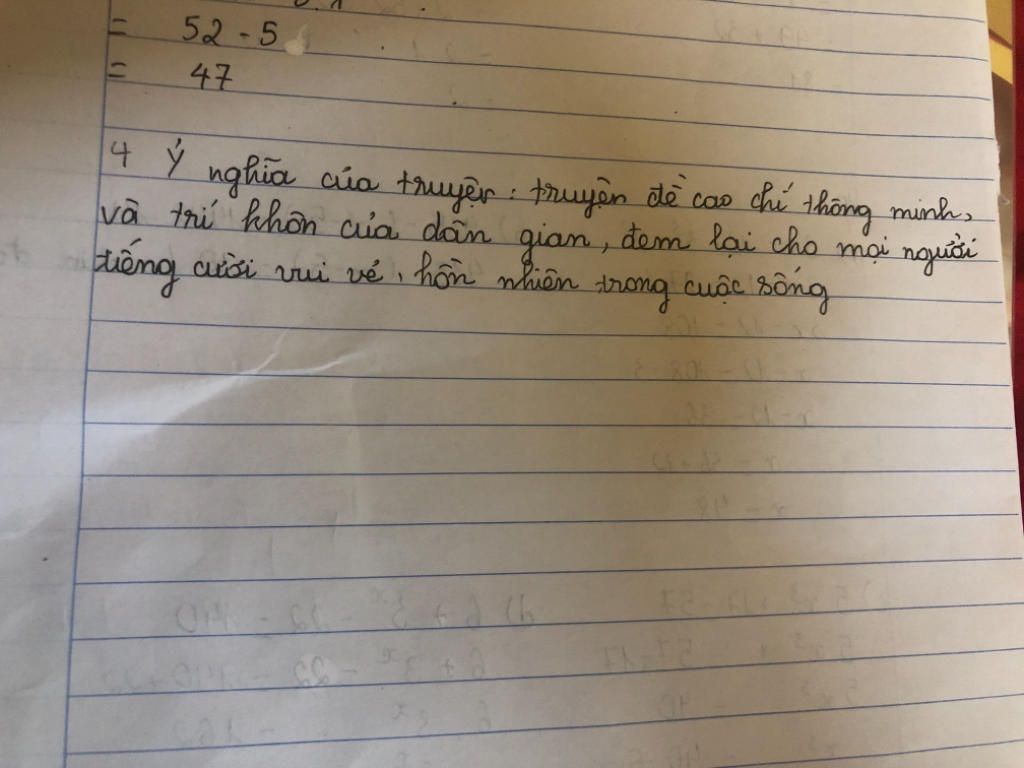 = 52 - 5
= 47
4 Ý nghĩa của truyện : truyện đề cao chí thông minh,
và trí khôn của dân gian, đem lại cho mọi người
tiếng cười vui vẻ, hồn nhiên trong cuộc sống